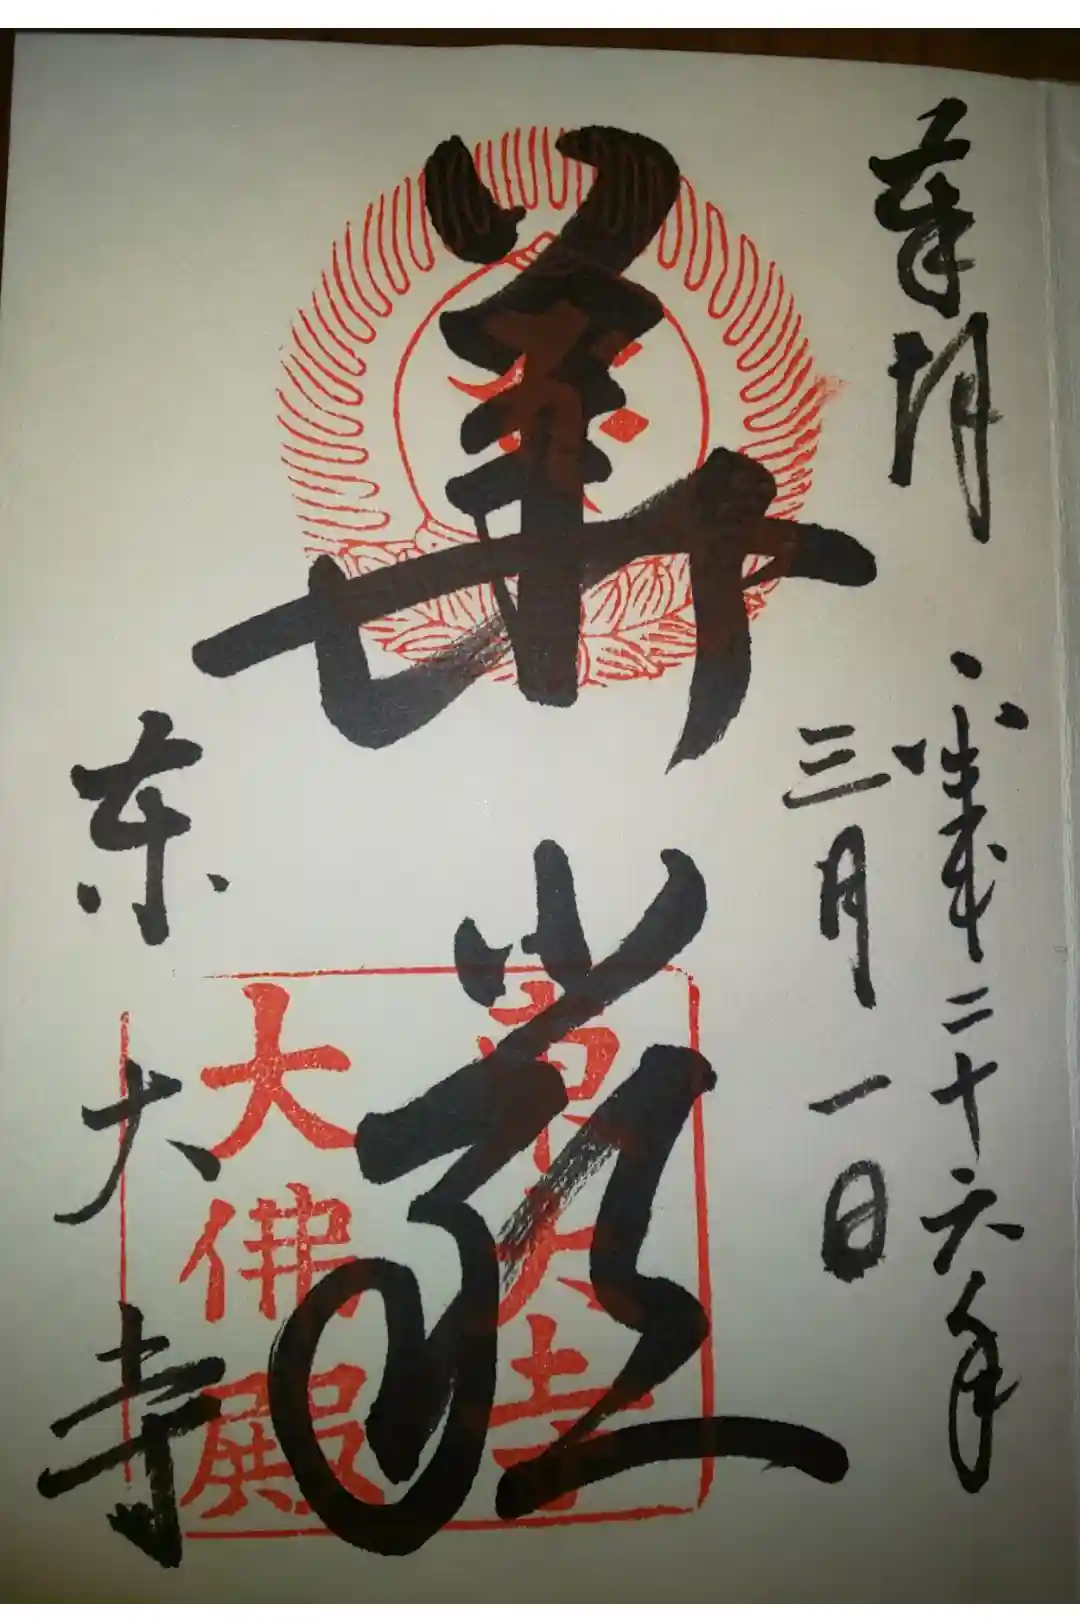 奉拝
平成二十六年
三月一日
華厳
東大寺
大佛殿
東大寺